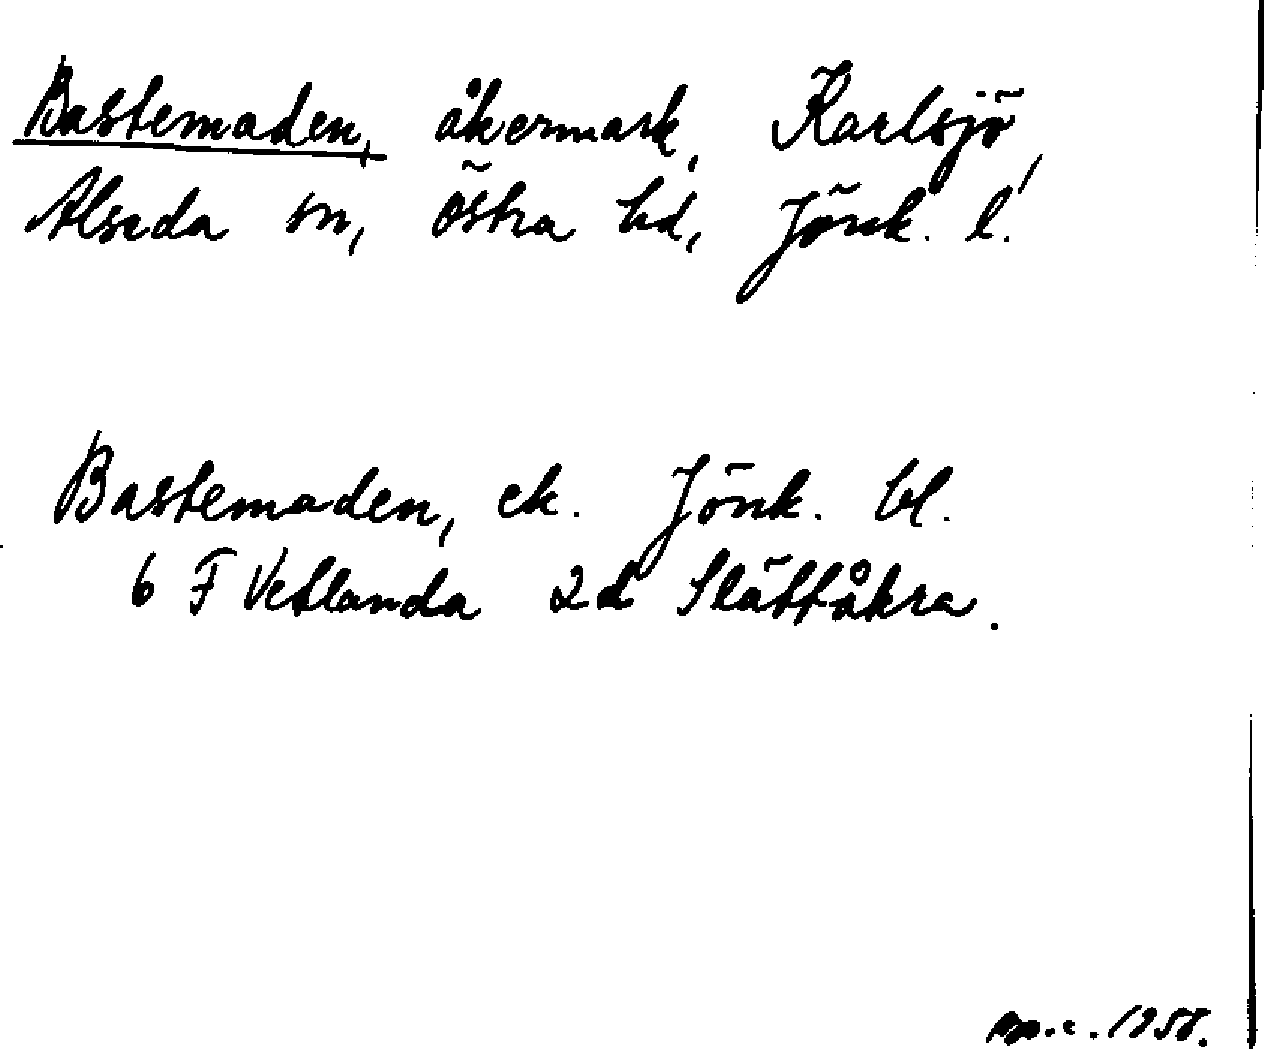 Bastemaden, åkermark, Karlsjö,
Alseda sn, Östra hd, Jönk. l.
Bastemaden, ek. Jönk. bl.
6 F Vetlanda 2d Slättåkra.